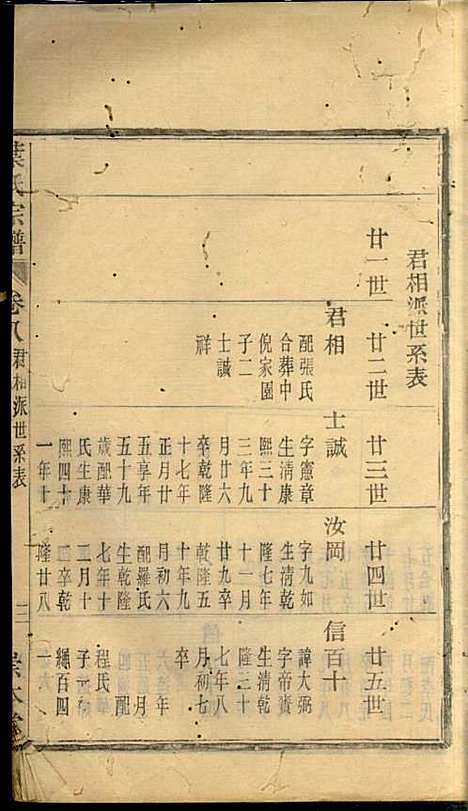 君相派世系表
廿一世
廿二世
廿三世
廿四世
廿五世
君相
配張氏
合葬中
倪家園
子二
士誠
祥
士誠
字憲章
生清康
熙三十
三年九
月廿六
卒乾隆
十七年
正月廿
五享年
五十九
歲配華
氏生康
熙四十
一年十
汝岡
字九如
生清乾
隆七年
十一月
廿九卒
乾隆五
十年九
月初六
配羅氏
生乾隆
七年十
二月十
四卒乾
隆廿八
信百十
諱大弼
字帝賚
生清乾
隆三十
七年八
月初七
卒
年
配
程氏
子一
繩百四
一
葉氏宗譜
卷八
君相派世系表
三
崇本堂